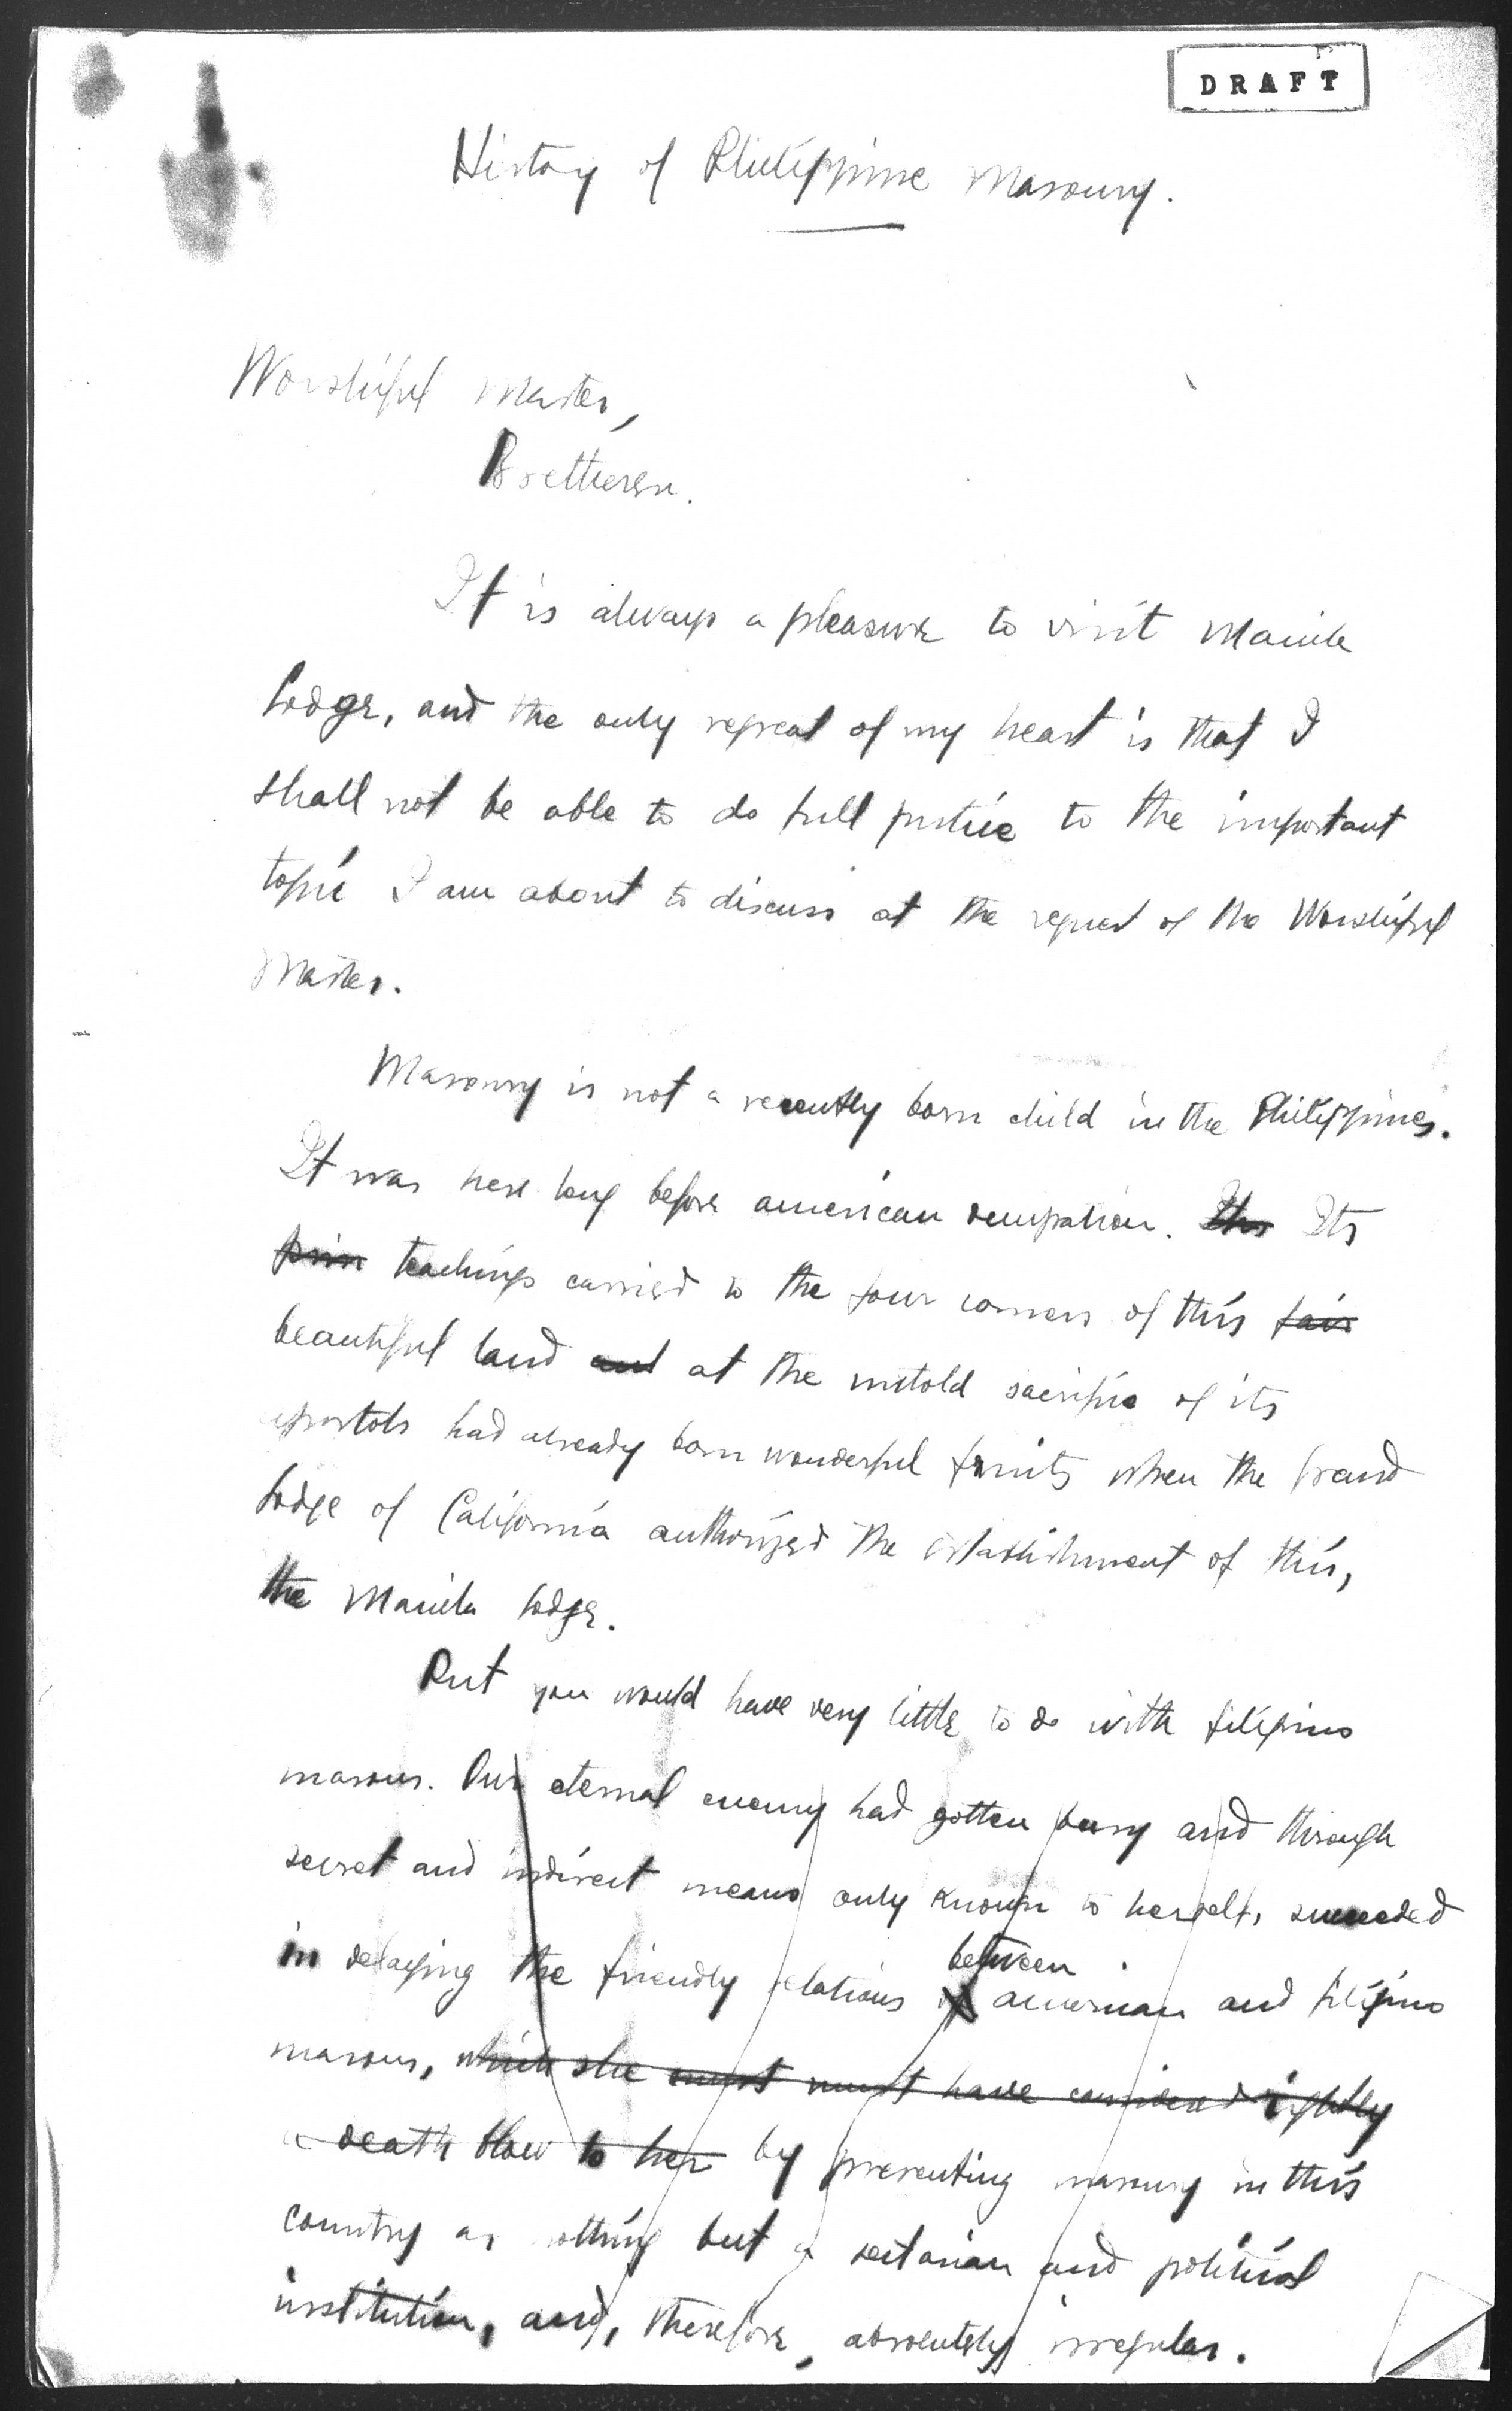 DRAFT
History of Philippine Masonry.
Worshipful Master,
Bretheren.
It is always a pleasure to visit Manila
Lodge, and the only regreat of my heart is that I
shall not be able to do full justice to the important
topic I am about to discuss at the request of the Worshipful
Master.
Masonry is not a recently born child in the Philippines.
It was here long before american occupation. Its
prin teachings carried to the four corners of this fair
beautiful land and at the untold sacrifice of its
apostols had already born wonderful fruits when the Grand
Lodge of California authorized the establishment of this,
the Manila Lodge.
But you would have very little to do with filipino
masons. Our eternal enemy had gotten busy and through
secret and indirect means only known to herself, succeeded
between
in delaying the friendly relations of american and filipino
masons, which she must must have considered rightly
a death blow to her by presenting masonry in this
country as nothing but a sectarian and political
institution, and, therefore, absolutely irregular.